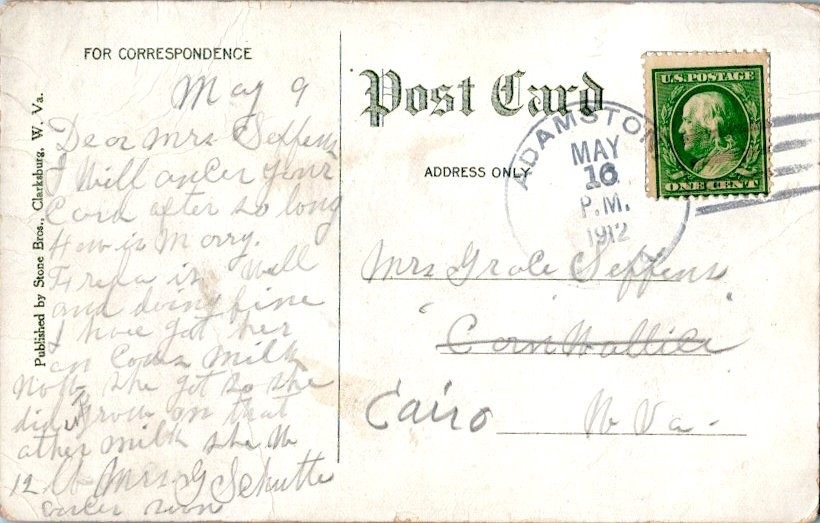 FOR CORRESPONDENCE
May 9
Dear Mrs Seffens
I Will ancer your
Card after so long
How is Morry.
Freda is Well
and doing fine
I have got her
on Cows Milk
Now, she got so she
did grow on that
other milk she W
12 lb Mrs G Schutte
ancer soon
Published by Stone Bros., Clarksburg, W. Va.
Post Card
ADDRESS ONLY
ADAMSTON
MAY
16
P.M.
1912
U.S. POSTAGE
ONE CENT
Mrs Grace Seffens
CornWallice
Cairo W Va.